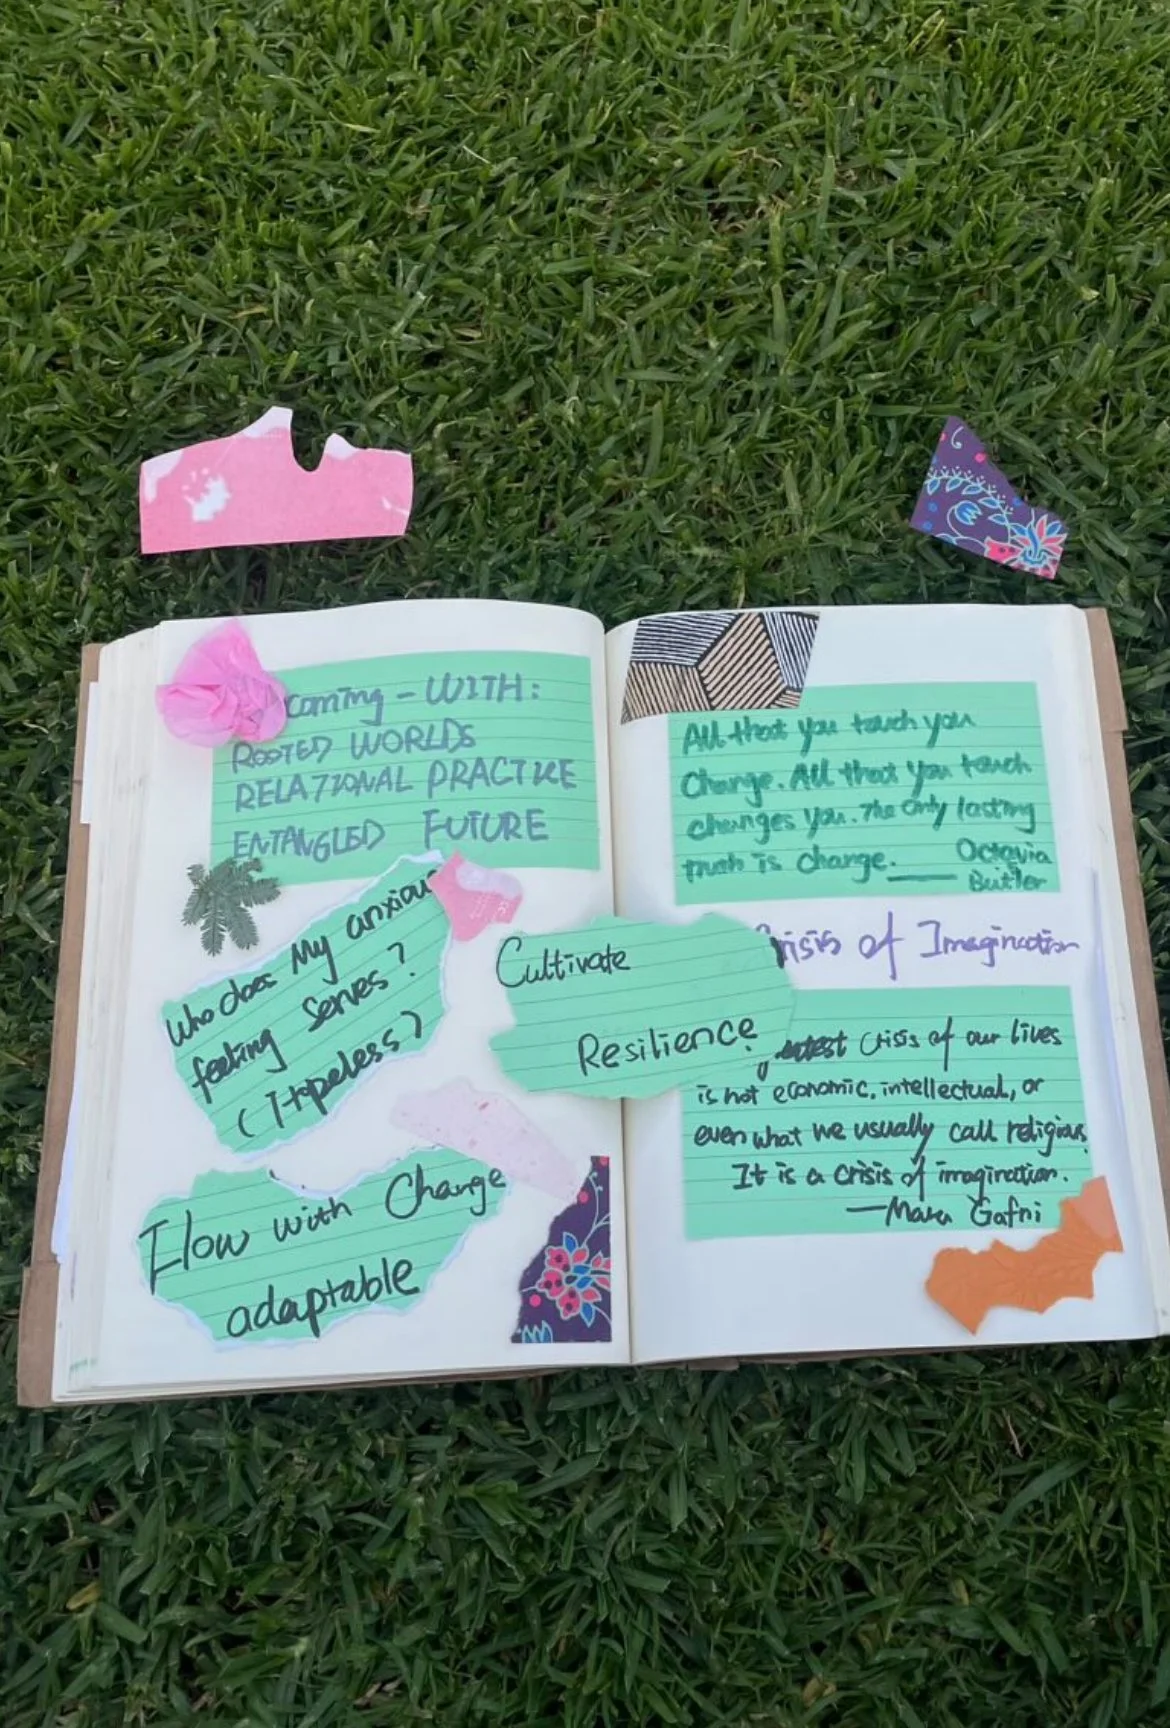 coming - WITH:
ROOTED WORLDS
RELATIONAL PRACTICE
ENTANGLED FUTURE
Who does My anxious
feeling serves?
(Hopeless)
Flow with Change
adaptable
Cultivate
Resilience
All that you touch you
Change. All that you touch
changes you. The only lasting
truth is change. — Octavia
Butler
Crisis of Imagination
greatest Crisis of our lives
is not economic, intellectual, or
even what we usually call religious.
It is a crisis of imagination.
— Gafni